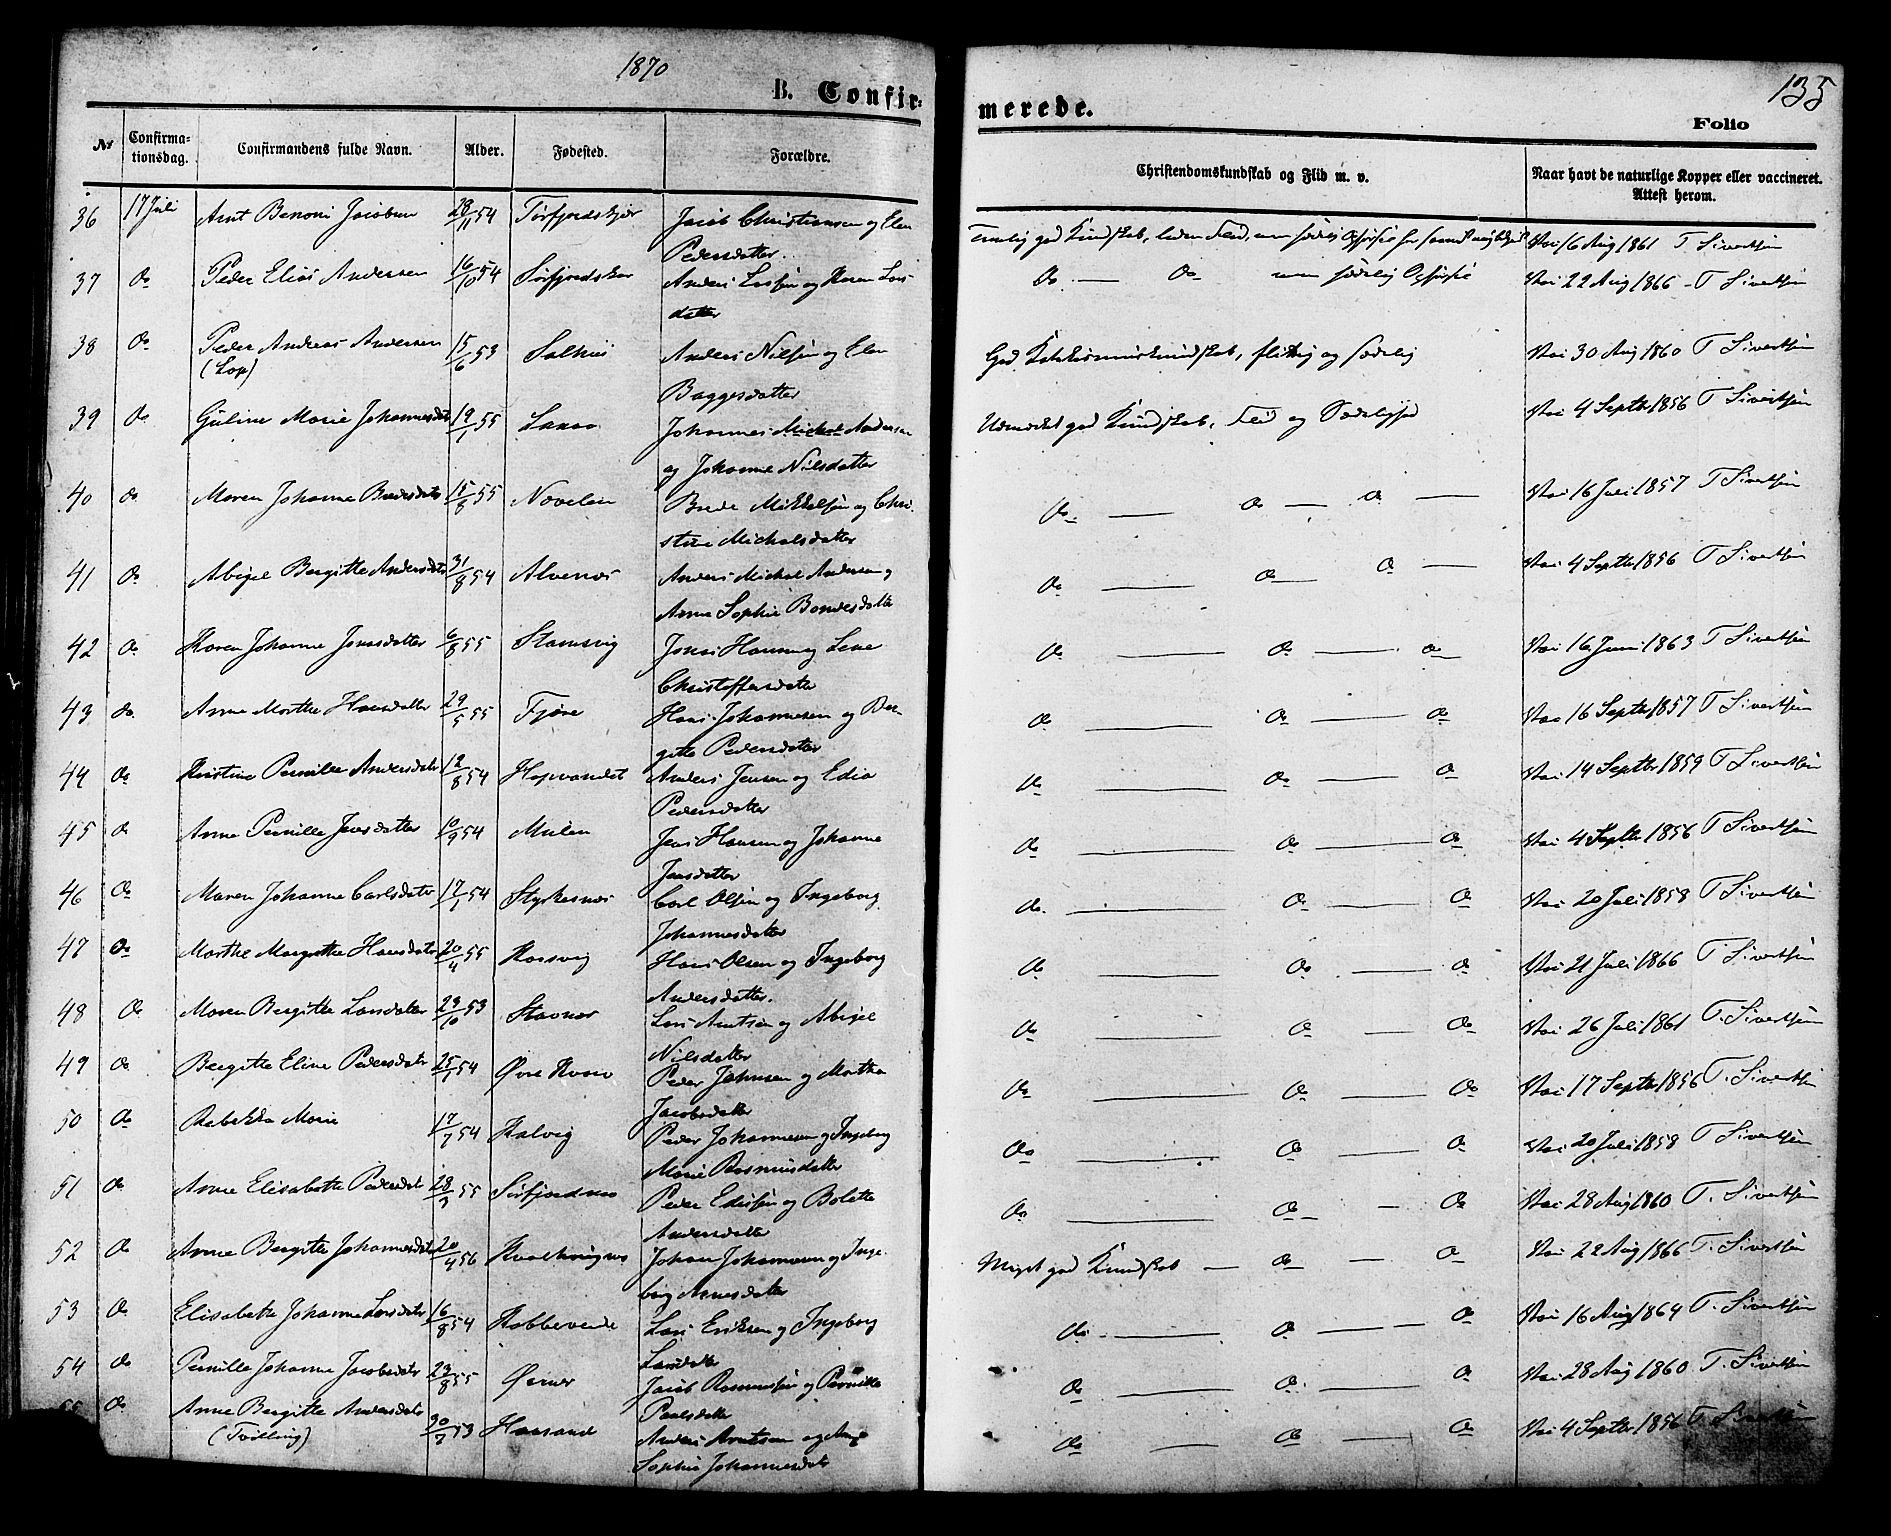 1870
135
B. Confir=
merede.
Folio
No Confirma-tionsdag. Confirmandens fulde Navn. Alder. Fødested. Forældre. Christendomskundskab og Flid m. v. Naar havt de naturlige Kopper eller vaccineret. Attest herom.
36 17 Juli Arnt Benoni Jacobsen 28/11 54 Jacob Christiansen og Elen 16 Aug 1861 T Sivertsen
Pedersdatter.
37 do Peder Elias Andersen 16/10 54 Anders Larsen og Karen Lars do — do 22 Aug 1866 - T Sivertsen
datter
38 do Peder Andreas Andersen 15/6 53 Anders Nilsen og Elen God flittig og sædelig 30 Aug 1860 T Sivertsen
(Lap)
Baggesdatter
39 do Guline Marie Johannesdatr 19/1 55 Johannes Michal Andersen Udmærket god Kundskab, Flid og Sædelighed 4 Septbr 1856 T Sivertsen
og Johanne Nilsdatter
40 do Maren Johanne Bredesdatr 15/8 55 Novelen Brede Mikkelsen og Chri- do — do — do — 16 Juli 1857 T Sivertsen
stine Michalsdatter
41 do Abigel Bergitte Andersdatr 31/8 54 Alvenes Anders Michal Andersen og do — do — do — 4 Septbr 1856 T Sivertsen
Anne Sophie
42 do Karen Johanne Jonasdatter 6/8 55 Stamsvig Jonas Hansen og Lene do — do — do 16 Juni 1863 T Sivertsen
Christoffersdatter
43 do Anne Marthe Hansdatter 29/5 55 Fjære Hans Johannesen og Ber- do — do — do 16 Septbr 1857 T Sivertsen
gitte Pedersdatter
44 do Kristine Pernille Andersdatr 12/8 54 Hopvandet Anders Jensen og Edia do — do — do 14 Septbr 1859 T Sivertsen
Pedersdatter
45 do Anne Pernille Jensdatter 10/9 54 Mulen Jens Hansen og Johanne do — do — do 4 Septbr 1856 T Sivertsen
Jensdatter
46 do Maren Johanne Carlsdatr 17/1 54 Styrkesnes Carl Olsen og Ingeborg do. — do — do 20 Juli 1858 T Sivertsen
Johannesdatter
47 do Marthe Margrethe Hansdatr 20/4 55 Korsvig Hans Olsen og Ingeborg do — do — do 21 Juli 1866 T. Sivertsen
Andersdatter.
48 do Maren Bergitte Larsdatter 23/10 53 Stavnes Lars Arntsen og Abigel do — do — do 26 Juli 1861 T. Sivertsen
Nilsdatter
49 do Bergitte Eline Pedersdatr 25/1 54 Øvre Peder Johnsen og Martha do — do — do 17 Septbr 1856 T. Sivertsen
Jacobsdatter
50 do Rebekka Marie 17/7 54 Kalvig Peder Johannesen og Ingeborg do — do — do 20 Juli 1858 T Sivertsen
Marie Rasmusdatter
51 do Anne Elisabeth Pedersdatr 28/3 55 Sørfjordnes Peder Edissen og Bolette do — do — do 28 Aug 1860 T. Sivertsen
Andersdatter
52 do Anne Bergitte Johannesdatr 20/4 56 Johan Johannesen og Inge- Meget god Kundskab — do — do 22 Aug 1866 T. Sivertsen
borg Arnesdatter
53 do Elisabeth Johanne Larsdatr 16/8 54 Kobbevende Lars Eriksen og Ingeborg do. — do — do 16 Aug 1864 T. Sivertsen
Larsdatter
54 do Pernille Johanne Jacobsdatr 23/8 55 Øxnes Jacob Rasmussen og Pernille do — do. — do 28 Aug 1860 T. Sivertsen
Paalsdatter
55 do Anne Bergitte Andersdatr 30/7 53 Haasand Anders Arntsen og do — do — do 4 Septbr 1856 T. Sivertsen
(Tvilling)
Sophie Johannesdatr